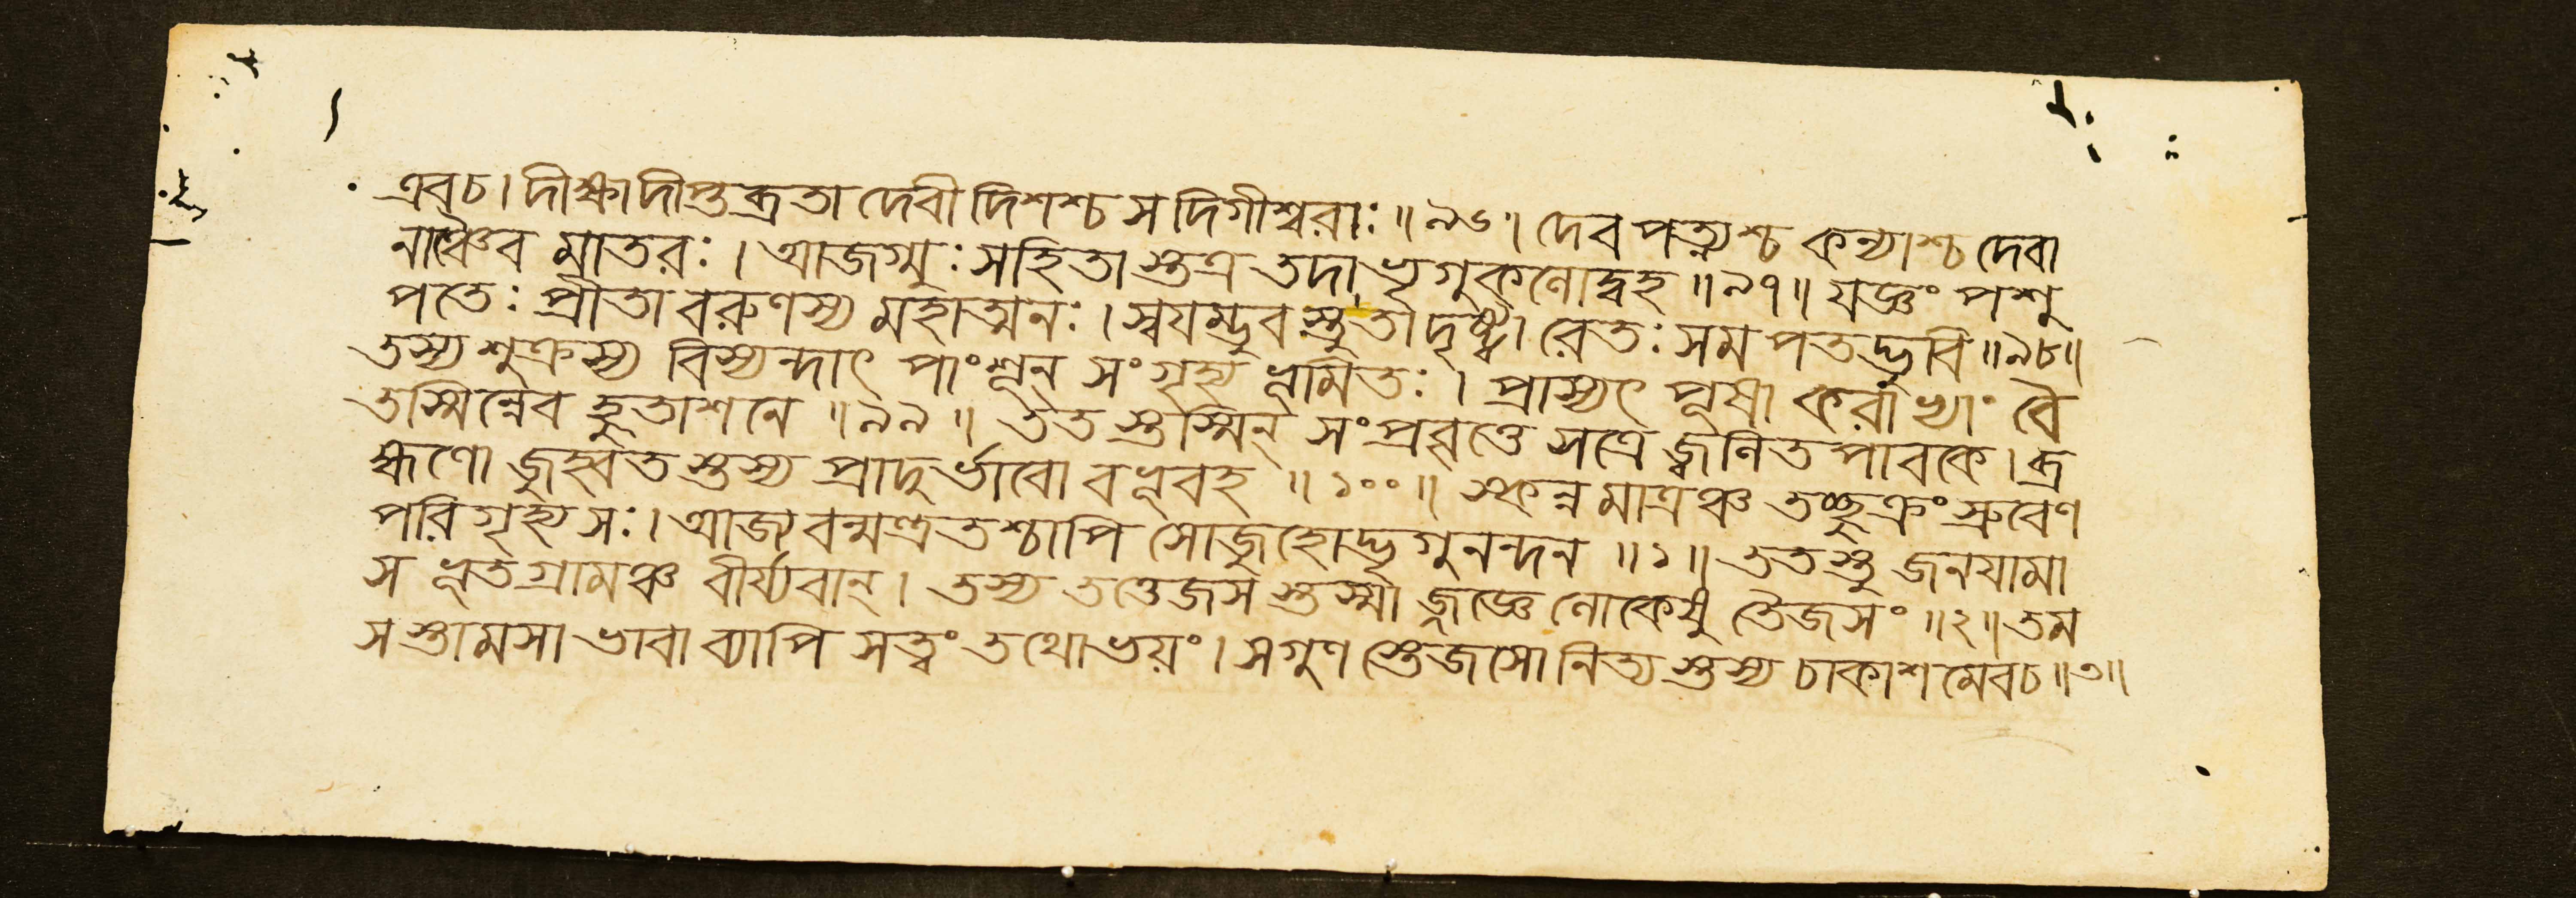 এব চ। দীক্ষা দীপ্তব্রতা দেবী দিশশ্চ সদিগীশ্বরাঃ॥৯৬॥ দেবপত্ন্যশ্চ কন্যাশ্চ দেবা
নাঞ্চৈব মাতরঃ। আজগ্মুঃ সহিতাস্তত্র তদা ভৃগুকুলোদ্বহ॥৯৭॥ যজ্ঞং পশু
পতেঃ প্রীতা বরুণস্য মহাত্মনঃ। স্বয়ম্ভুবস্তু তা দৃষ্ট্বা রেতঃ সমপতদ্ভুবি॥৯৮॥
তস্য শুক্রস্য বিস্যন্দাৎ পাংশূন্ সংগৃহ্য ভূমিতঃ। প্রাস্যৎ পূষা করাভ্যাং বৈ
তস্মিন্নেব হুতাশনে॥৯৯॥ ততস্তস্মিন্ সংপ্রবৃত্তে সত্রে জ্বলিতপাবকে। ব্র
হ্মণো জুহ্বতস্তস্য প্রাদুর্ভাবো বভূব হ॥১০০॥ স্কন্নমাত্রঞ্চ তচ্ছুক্রং স্রুবেণ
পরিগৃহ্য সঃ। আজ্যবন্মন্ত্রতশ্চাপি সোজুহোদ্ভৃগুনন্দন॥১॥ ততস্তু জনয়ামা
স ভূতগ্রামঞ্চ বীর্য্যবান্। তস্য তত্তেজসস্তস্মাজ্জজ্ঞে লোকেষু তৈজসং॥২॥ তম
সস্তামসা ভাবা ব্যাপি সত্ত্বং তথোভয়ং। সগুণস্তেজসো নিত্যস্তস্য চাকাশমেব চ॥৩॥